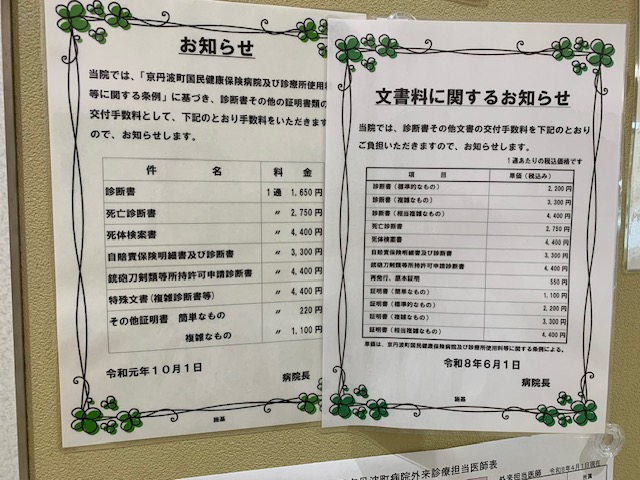 お知らせ
当院では、「京丹波町国民健康保険病院及び診療所使用料
等に関する条例」に基づき、診断書その他の証明書類の
交付手数料として、下記のとおり手数料をいただきます
ので、お知らせします。
件 名 料 金
診断書 1通 1,650円
死亡診断書 〃 2,750円
死体検案書 〃 4,400円
自賠責保険明細書及び診断書 〃 3,300円
銃砲刀剣類等所持許可申請診断書 〃 4,400円
特殊文書(複雑診断書等) 〃 4,400円
その他証明書 簡単なもの 〃 220円
複雑なもの 〃 1,100円
令和元年10月1日
病院長
掲基
文書料に関するお知らせ
当院では、診断書その他文書の交付手数料を下記のとおり
ご負担いただきますので、お知らせします。
1通あたりの税込価格です
項 目 単価(税込み)
診断書(標準的なもの) 2,200円
診断書(複雑なもの) 3,300円
診断書(相当複雑なもの) 4,400円
死亡診断書 2,750円
死体検案書 4,400円
自賠責保険明細書及び診断書 3,300円
銃砲刀剣類等所持許可申請診断書 4,400円
再発行、原本証明 550円
証明書(簡単なもの) 1,100円
証明書(標準的なもの) 2,200円
証明書(複雑なもの) 3,300円
証明書(相当複雑なもの) 4,400円
単価は、京丹波町国民健康保険病院及び診療所使用料等に関する条例による。
令和8年6月1日
病院長
掲基
丹波町病院外来診療担当医師表
令和8年4月1日現在
外来担当医師
所属